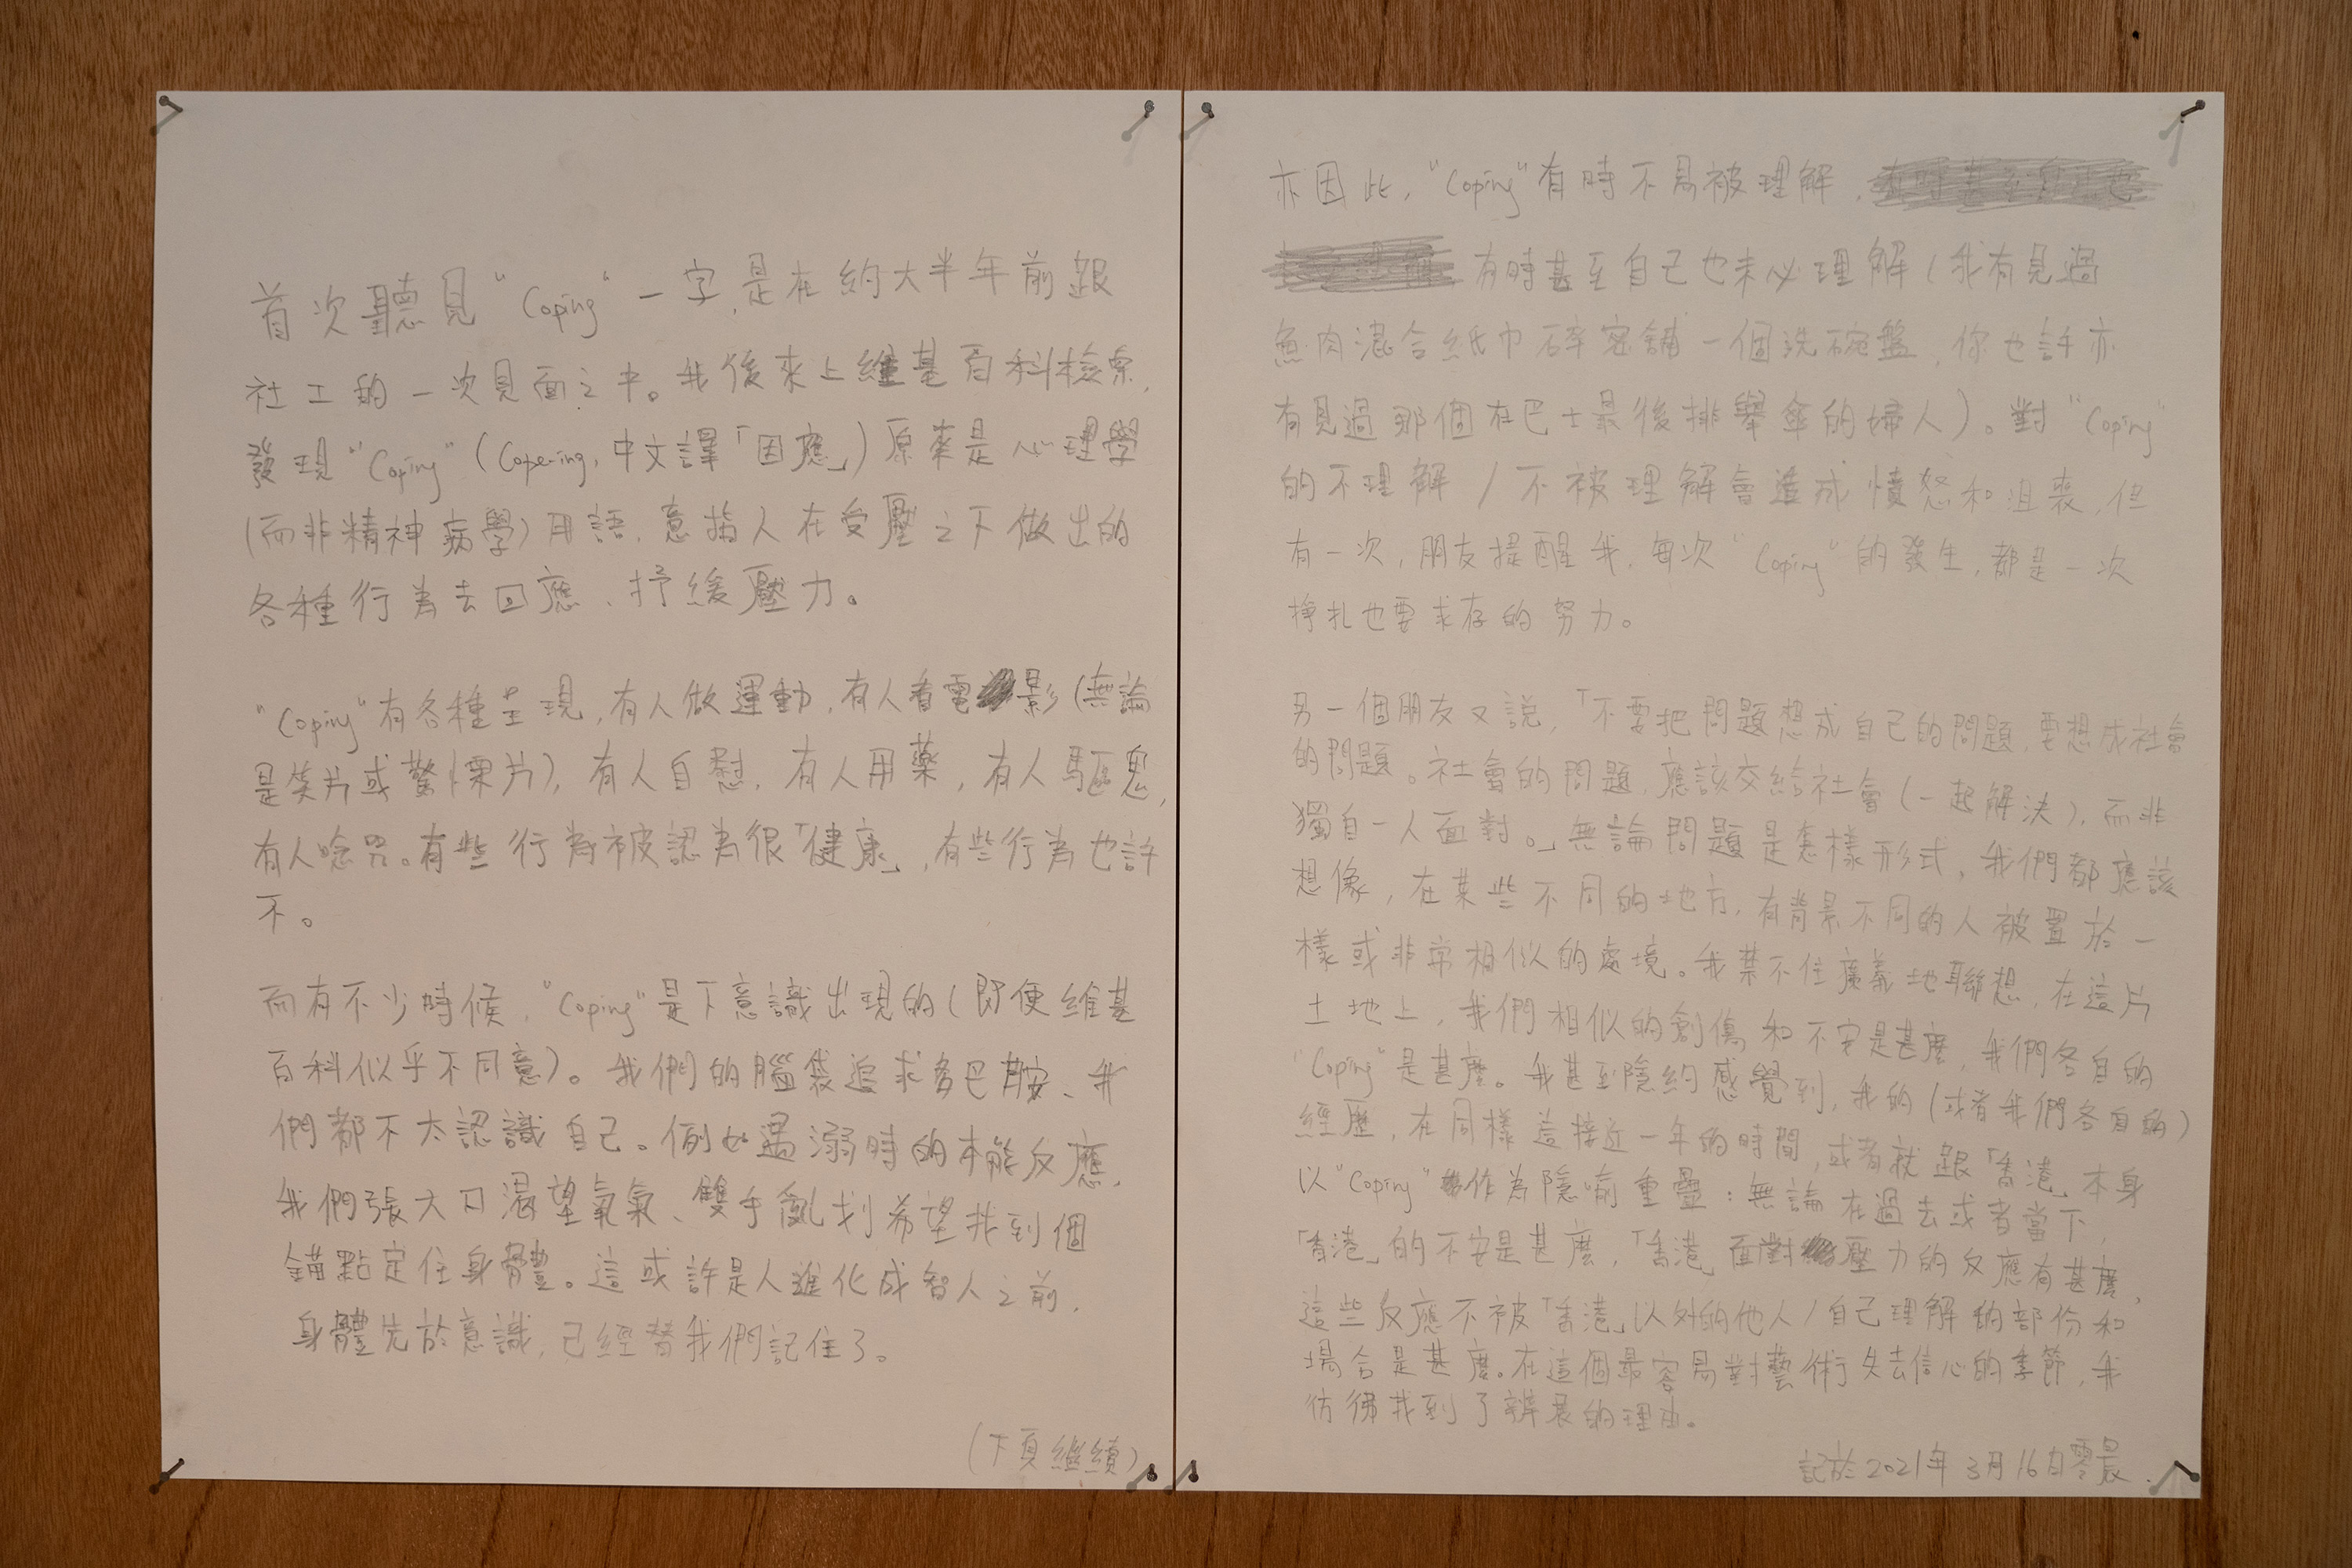 首次聽見“Coping“一字，是在約大半年前跟
社工的一次見面之中。我後來上維基百科檢索，
發現“Coping“（Cope-ing，中文譯「因應」）原來是心理學
（而非精神病學）用語，意指人在受壓之下做出的
各種行為去回應、抒緩壓力。
“Coping“有各種呈現，有人做運動，有人看電影（無論
是笑片或驚慄片），有人自慰，有人用藥，有人驅鬼，
有人唸咒。有些行為被認為很「健康」，有些行為也許
不。
而有不少時候，“Coping“是下意識出現的（即便維基
百科似乎不同意）。我們的腦袋追求多巴胺、我
們都不太認識自己。例如遇溺時的本能反應，
我們張大口渴望氧氣、雙手亂划希望找到個
錨點定住身體。這或許是人進化成智人之前，
身體先於意識，已經替我們記住了。
（下頁繼續）
亦因此，“Coping“有時不易被理解，
有時甚至自己也未必理解（我有見過
魚肉混合紙巾碎密鋪一個洗碗盤，你也許亦
有見過那個在巴士最後排舉傘的婦人）。對“Coping“
的不理解／不被理解會造成憤怒和沮喪，但
有一次，朋友提醒我，每次“Coping“的發生，都是一次
掙扎也要求存的努力。
另一個朋友又說，「不要把問題想成自己的問題，要想成社會
的問題。社會的問題，應該交給社會（一起解決），而非
獨自一人面對。」無論問題是怎樣形式，我們都應該
想像，在某些不同的地方，有背景不同的人被置於一
樣或非常相似的處境。我禁不住廣義地聯想，在這片
土地上，我們相似的創傷和不安是甚麼，我們各自的
“Coping“是甚麼。我甚至隱約感覺到，我的（或者我們各自的）
經歷，在同樣這接近一年的時間，或者就跟「香港」本身
以“Coping“作為隱喻重疊：無論在過去或者當下，
「香港」的不安是甚麼，「香港」面對壓力的反應有甚麼，
這些反應不被「香港」以外的他人／自己理解的部份和
場合是甚麼。在這個最容易對藝術失去信心的季節，我
彷彿找到了辦展的理由。
記於2021年3月16日零晨